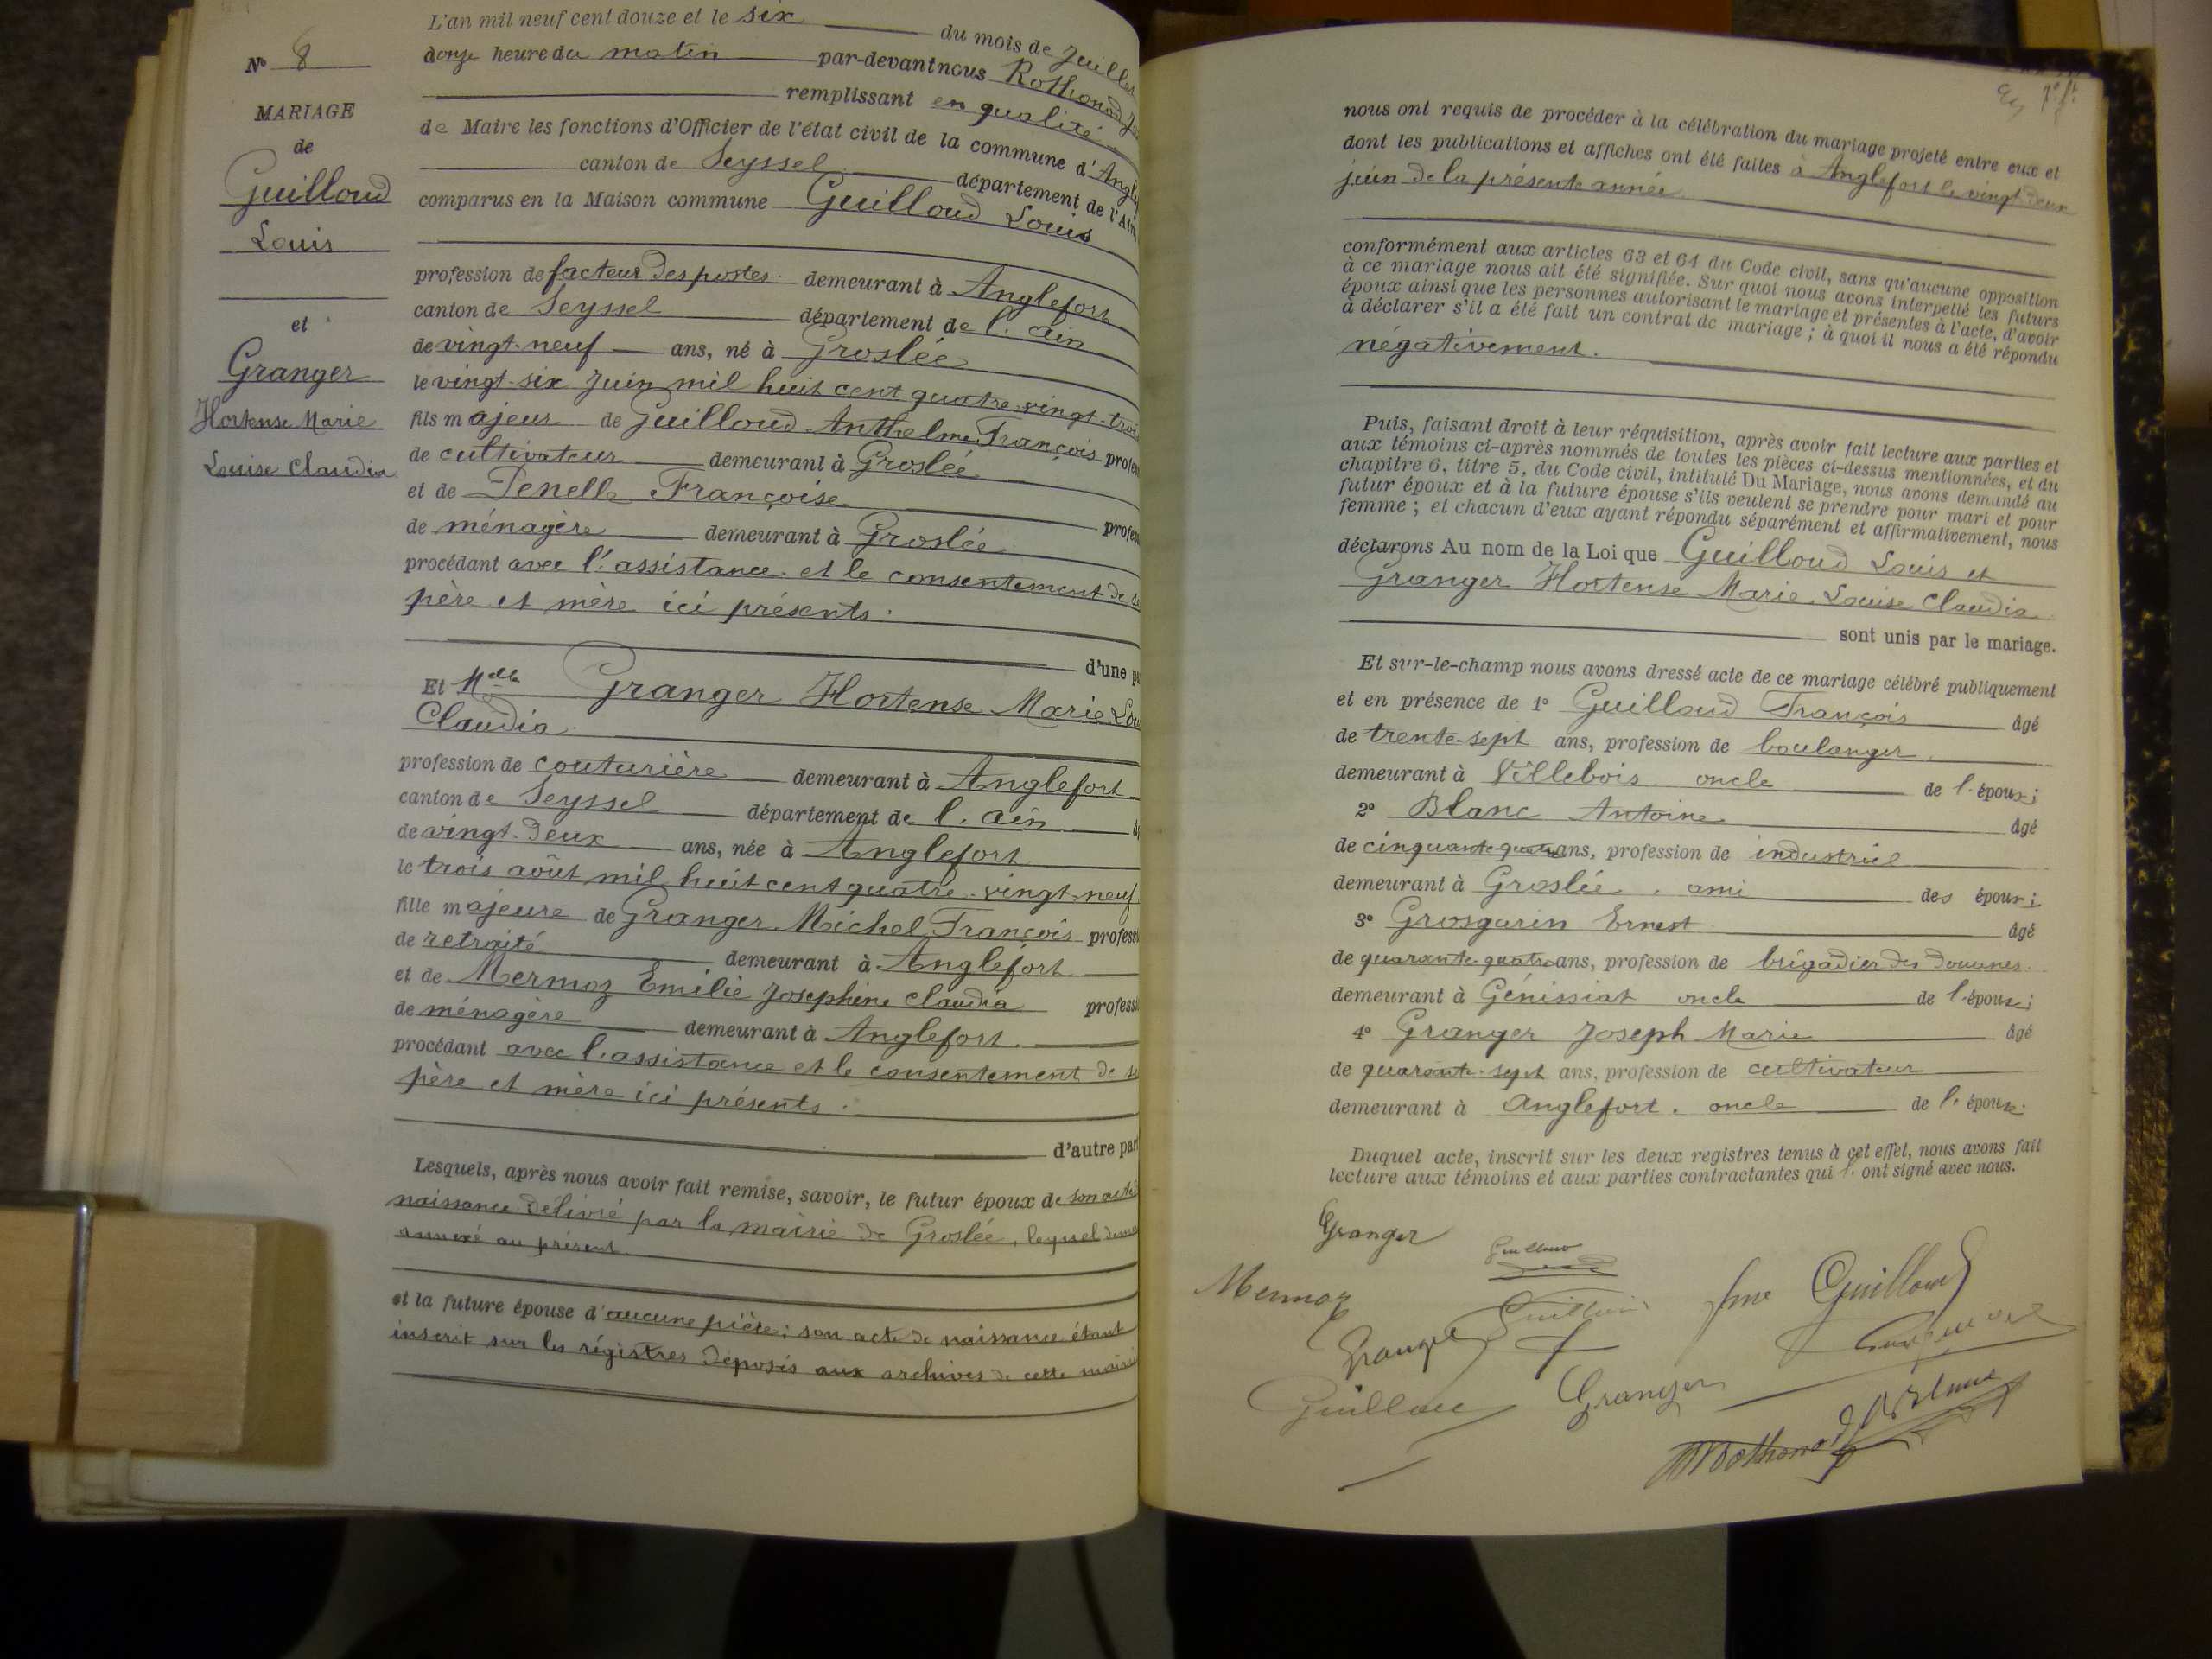 N° 8
MARIAGE
de
Guilloud
Louis
et
Granger
Hortense Marie
Louise Claudia
L'an mil neuf cent douze et le six du mois de Juillet
onze heure du matin par-devant nous Rothonod
remplissant en qualité
de Maire les fonctions d'Officier de l'état civil de la commune d'Angle
canton de Seyssel département de l'Ain,
comparus en la Maison commune Guilloud Louis
profession de facteur des postes demeurant à Anglefort
canton de Seyssel département de l'Ain
de vingt-neuf ans, né à Groslée
le vingt-six Juin mil huit cent quatre-vingt-trois
fils majeur de Guilloud Anthelme François profes
de cultivateur demeurant à Groslée
et de Penelle Françoise
profes
de ménagère demeurant à Groslée
procédant avec l'assistance et le consentement de se
père et mère ici présents.
d'une pa
Et Melle Granger Hortense Marie Lou
Claudia
profession de couturière demeurant à Anglefort
canton de Seyssel département de l'Ain
de vingt-deux ans, née à Anglefort
le trois août mil huit cent quatre-vingt-neuf
fille majeure de Granger Michel François profess
de retraité demeurant à Anglefort
et de Mermoz Emilie Joséphine Claudia profess
de ménagère demeurant à Anglefort.
procédant avec l'assistance et le consentement de se
père et mère ici présents.
d'autre part
Lesquels, après nous avoir fait remise, savoir, le futur époux de son acte
naissance délivré par la mairie de Groslée, lequel deme
annexé au présent
et la future épouse d'aucune pièce; son acte de naissance étant
inscrit sur les régistres déposés aux archives de cette mairie
nous ont requis de procéder à la célébration du mariage projeté entre eux et
dont les publications et affiches ont été faites à Anglefort le vingt deux
juin de la présente année
conformément aux articles 63 et 64 du Code civil, sans qu'aucune opposition
à ce mariage nous ait été signifiée. Sur quoi nous avons interpellé les futurs
époux ainsi que les personnes autorisant le mariage et présentes à l'acte, d'avoir
à déclarer s'il a été fait un contrat de mariage ; à quoi il nous a été répondu
négativement.
Puis, faisant droit à leur réquisition, après avoir fait lecture aux parties et
aux témoins ci-après nommés de toutes les pièces ci-dessus mentionnées, et du
chapitre 6, titre 5, du Code civil, intitulé Du Mariage, nous avons demandé au
futur époux et à la future épouse s'ils veulent se prendre pour mari et pour
femme ; et chacun d'eux ayant répondu séparément et affirmativement, nous
déclarons Au nom de la Loi que Guilloud Louis et
Granger Hortense Marie Louise Claudia
sont unis par le mariage.
Et sur-le-champ nous avons dressé acte de ce mariage célébré publiquement
et en présence de 1° Guilloud François âgé
de trente-sept ans, profession de boulanger
demeurant à Villebois oncle de l'époux;
2° Blanc Antoine âgé
de cinquante-quatre ans, profession de industriel
demeurant à Groslée, ami des époux;
3° Grosgurin Ernest âgé
de quarante-quatre ans, profession de brigadier des douanes
demeurant à Génissiat oncle de l'épouse;
4° Granger Joseph Marie âgé
de quarante-sept ans, profession de cultivateur
demeurant à Anglefort. oncle de l'épouse.
Duquel acte, inscrit sur les deux registres tenus à cet effet, nous avons fait
lecture aux témoins et aux parties contractantes qui l'ont signé avec nous.
Granger
Guilloud
Mermoz
Guilloud
fme Guilloud
Granger
Guilloud
Granger
Blanc
Rothonod